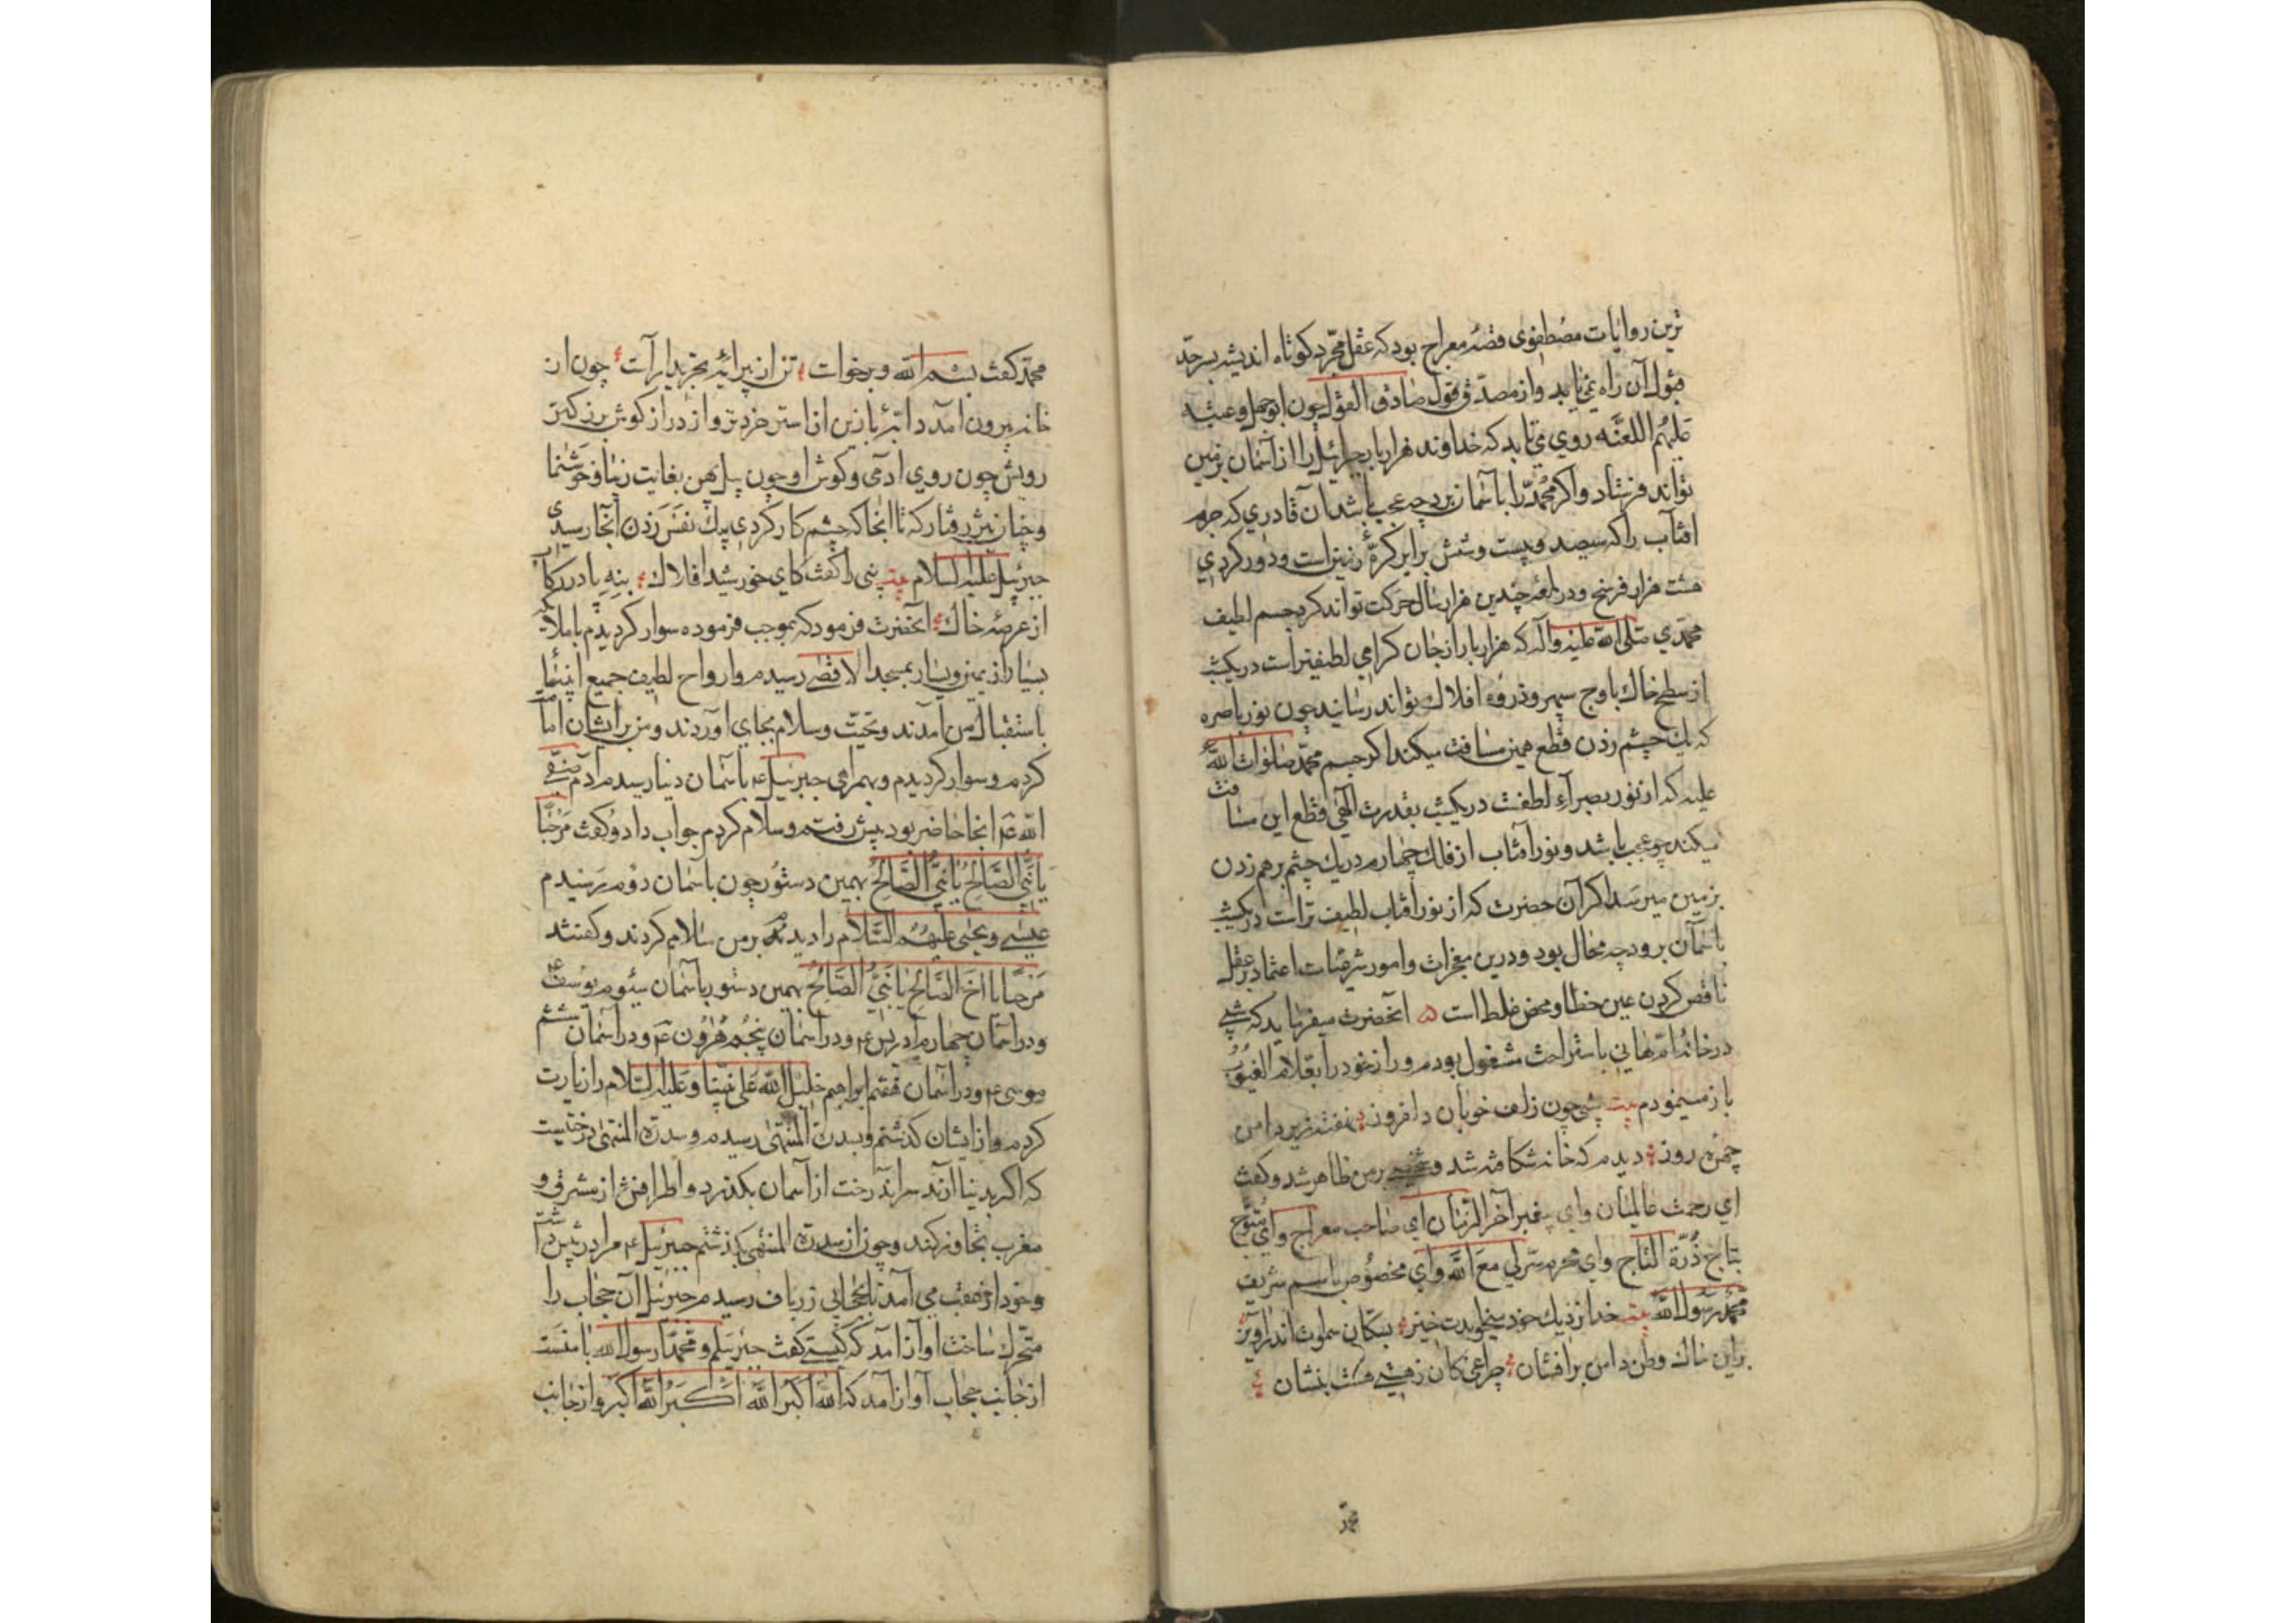 ترین روایات مصطفوی قصهٔ معراج بود که عقل مجرد کوتاه اندیشه بسرحد
قبول آن راه نمی‌یابد و از مصدق قول صادق القول چون ابوجهل و عتبه
علیهم اللعنه روی می‌تابد که خداوند هزار بار جبرائیل را از آسمان بزمین
تواند فرستاد و اگر محمد را باسمان برد چه عجب باشد آن قادری که جرم
افتاب را که سیصد و بیست و شش برابر کرهٔ زمین است و دور کره وی
هشت هزار فرسخ و در لمعه چندین هزار سال حرکت تواند کرد جسم لطیف
محمدی صلی الله علیه و آله که هزار بار از جان گرامی لطیفتر است در یکشب
از سطح خاک باوج سپهر و ذروه افلاک تواند رسانید چون نور باصره
که یک چشم زدن قطع همین مسافت میکند اگر جسم محمد صلوات الله
علیه که از نور بصر الطفست در یکشب بقدرت الهی قطع این مسافت
میکند چه عجب باشد و نور آفتاب از فلک چهارم در یک چشم برهم زدن
بزمین میرسد اگر آن حضرت که از نور افتاب لطیف تر است در یکشب
باسمان برود چه محال بود و درین معجزات و امور شرعیات اعتماد بر عقل
ناقص کردن عین خطا و محض غلط است آنحضرت میفرماید که شبی
در خانه ام هانی باستراحت مشغول بودم و راز خود را بعلام الغیوب
باز مینمودم بیت شبی چون زلف خوبان دلفروز نهفته زیر دامن
چهره روز دیدم که خانه شکافته شد و برمن ظاهر شد و گفت
ای رحمت عالمیان وای پیغمبر آخر الزمان ای صاحب معراج و ای متوج
بتاج درة التاج و ای محرم سر لی مع الله و ای مخصوص باسم شریف
محمد رسول الله بیت خدا نزدیک خود میخواندت خیز بسکان سموات اندرآویز
براین خاک وطن دامن برافشان چراغی کان زمینی هست بنشان
محمد
محمد گفت بسم الله و برخوات تن از پیرایه تجرید آرآت چون از
خانه بیرون امد دابهٔ بازین از استر خردتر و از دراز گوش بزرگتر
رویش چون روی ادمی و گوش او چون پیل پهن بغایت زیبا و خوشنما
و چنان تیز رفتار که تا انجا که چشم کار کردی بیک نفس زدن آنجا رسیدی
جبرئیل علیه السلام بیت پی را گفت کای خورشید افلاک بنه پا در رکاب
از عرصهٔ خاک آنحضرت فرمود که بموجب فرموده سوار گردیدم با ملایکه
بسیار از یمین و یسار بمسجد الاقصی رسیدم و ارواح لطیف جمیع انبیا
باستقبال من آمدند و تحیت و سلام بجای اوردند و من برایشان امامت
کردم و سوار گردیدم و بهمراهی جبرئیل ع باسمان دنیا رسیدم آدم صفی
الله ع انجا حاضر بود پیش رفتم و سلام کردم جواب داد و گفت مرحبا
یا نبی الصالح یا نبی الصالح بهمین دستور چون باسمان دوم رسیدم
عیسی و یحیی علیهم السلام را دیدم بر من سلام کردند و گفتند
مرحبا یا اخ الصالح یا نبی الصالح بهمین دستور باسمان سیوم یوسف ع
و در اسمان چهارم ادریس ع و در اسمان پنجم هرون ع و در اسمان ششم
موسی ع و در اسمان هفتم ابراهیم خلیل الله علی نبینا و علیه السلام را زیارت
کردم و از ایشان گذشتم و بسدرة المنتهی رسیدم و سدرة المنتهی درختیست
که اگر بدنیا آرند سر اندرخت از آسمان بگذرد و اطرافش از مشرق و
مغرب تجاوز کند و چون از سدرة المنتهی بگذشتم جبرئیل ع مرا در پیش داشت
و خود از عقب می آمد تا بحجابی زرباف رسیدم جبرئیل آن حجاب را
متحرک ساخت اواز آمد که کیستی گفت جبرئیلم و محمد رسول الله با منست
از جانب حجاب آواز آمد که الله اکبر الله اکبر الله اکبر و از جانب